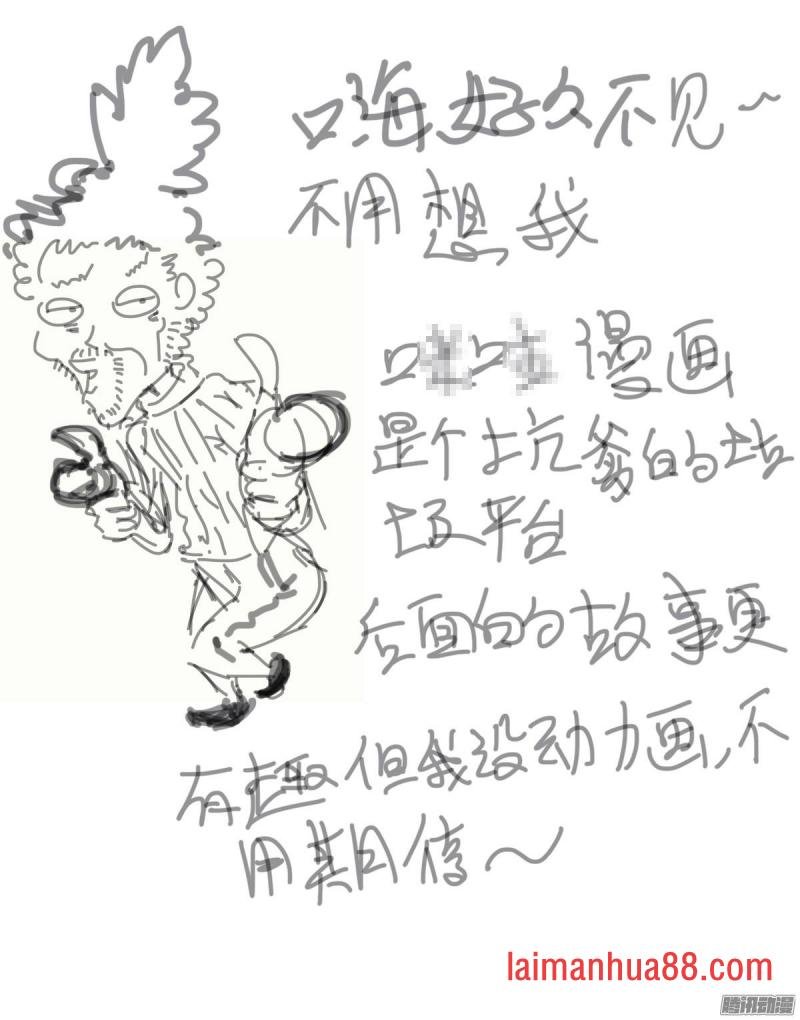 嗨好久不见~
不用想我
漫画
是个坑爹的垃
圾平台
后面的故事更
有趣但我没动力画,不
用期待~
laimanhua88.com
腾讯动漫